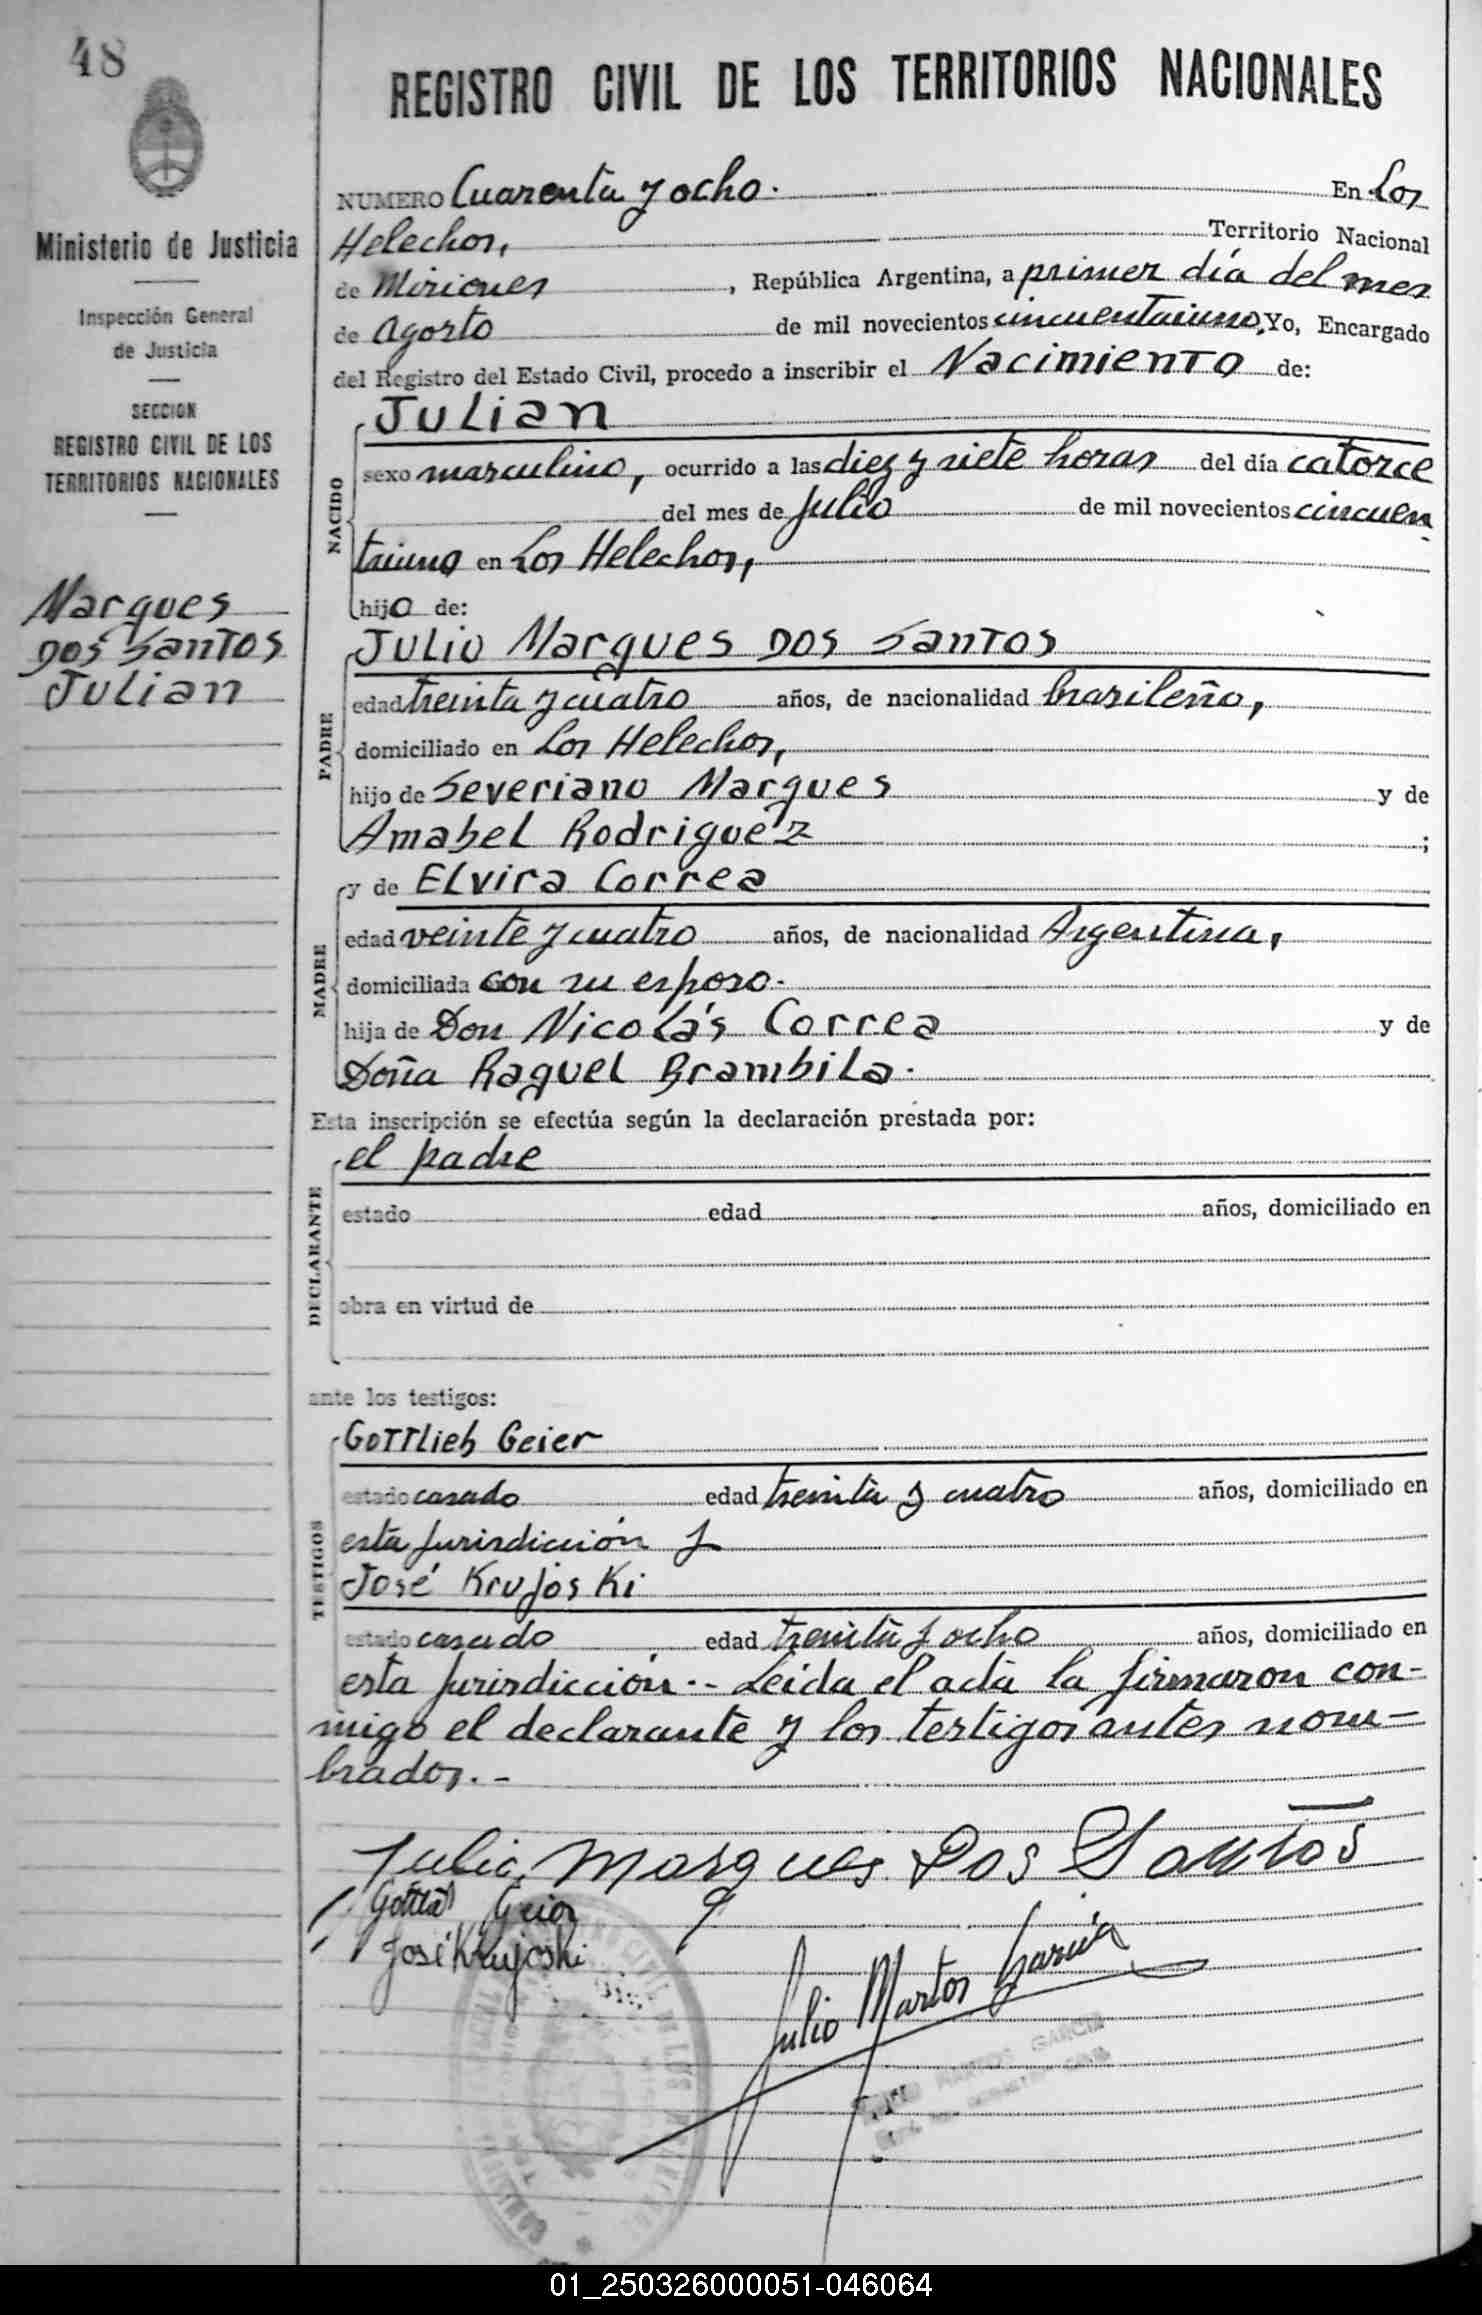 48
REGISTRO CIVIL DE LOS TERRITORIOS NACIONALES
Ministerio de Justicia
Inspección General
de Justicia
SECCION
REGISTRO CIVIL DE LOS
TERRITORIOS NACIONALES
Marques
DOS Santos
Julian
NUMERO Cuarenta y ocho. En Los
Helechos, Territorio Nacional
de Misiones, República Argentina, a primer día del mes
de Agosto de mil novecientos cincuentaiuno, Yo, Encargado
del Registro del Estado Civil, procedo a inscribir el Nacimiento de:
NACIDO
Julian
sexo masculino, ocurrido a las diez y siete horas del día catorce
del mes de Julio de mil novecientos cincuen
taiuno en Los Helechos,
hijo de:
PADRE
Julio Marques DOS Santos
edad treinta y cuatro años, de nacionalidad brasileño,
domiciliado en Los Helechos,
hijo de Severiano Marques y de
Amabel Rodriguez ;
MADRE
y de Elvira Correa
edad veinte y cuatro años, de nacionalidad Argentina,
domiciliada con su esposo.
hija de Don Nicolás Correa y de
Doña Raquel Brambila.
Esta inscripción se efectúa según la declaración prestada por:
DECLARANTE
el padre
estado edad años, domiciliado en
obra en virtud de
ante los testigos:
TESTIGOS
Gottlieb Geier
estado casado edad treinta y cuatro años, domiciliado en
esta Jurisdicción y
José Krujoski
estado casado edad treinta y ocho años, domiciliado en
esta Jurisdicción.- Leída el acta la firmaron con-
migo el declarante y los testigos antes nom-
brados.-
Julio Marques Dos Santos
Geier
José Krujoski
Julio Martos Garcia
MARTOS GARCIA
01_250326000051-046064